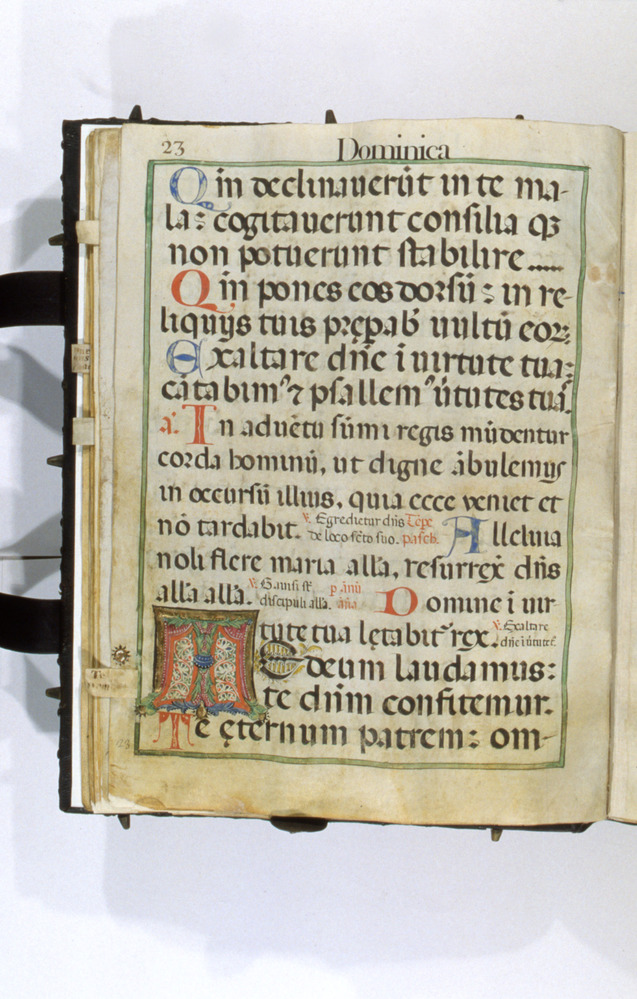 23 Dominica
Qm̄ declinauerūt in te ma-
la: cogitauerunt consilia qȝ
non potuerunt stabilire.....
Qm̄ pones eos dorsū: in re-
liquijs tuis prępab' uultū eoꝝ:
Exaltare dn̄e ī uirtute tua:
cātabim⁹ ⁊ psallem⁹ ūtutes tuas.
a. In aduētu sūmi regis mūdentur
corda hominū, ut digne ābulemus
in occursū illius, quia ecce veniet et
nō tardabit. ℣. Egredietur dn̄s Tēpe
de loco sc̄to suo. pasch. Alleluia
noli flere maria allā, resurrexit dn̄s
allā allā. ℣. Gauisi st̄ p ānū
discipuli allā. aña Domine ī uir
tute tua lętabit̄ rex. ℣. Exaltare
dn̄e ī ūtute
TE deum laudamus:
te dn̄m confitemur.
Te ęternum patrem: om-